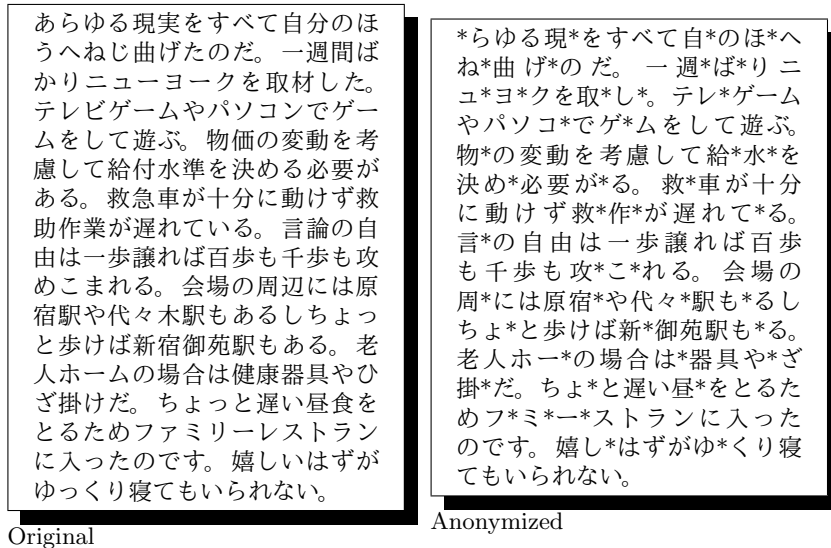 あらゆる現実をすべて自分のほ
うへねじ曲げたのだ。一週間ば
かりニューヨークを取材した。
テレビゲームやパソコンでゲー
ムをして遊ぶ。物価の変動を考
慮して給付水準を決める必要が
ある。救急車が十分に動けず救
助作業が遅れている。言論の自
由は一歩譲れば百歩も千歩も攻
めこまれる。会場の周辺には原
宿駅や代々木駅もあるしちょっ
と歩けば新宿御苑駅もある。老
人ホームの場合は健康器具やひ
ざ掛けだ。ちょっと遅い昼食を
とるためファミリーレストラン
に入ったのです。嬉しいはずが
ゆっくり寝てもいられない。
Original
*らゆる現*をすべて自*のほ*へ
ね*曲げ*のだ。一週*ば*りニ
ュ*ヨ*クを取*し*。テレ*ゲーム
やパソコ*でゲ*ムをして遊ぶ。
物*の変動を考慮して給*水*を
決め*必要が*る。救*車が十分
に動けず救*作*が遅れて*る。
言*の自由は一歩譲れば百歩
も千歩も攻*こ*れる。会場の
周*には原宿*や代々*駅も*るし
ちょ*と歩けば新*御苑駅も*る。
老人ホー*の場合は*器具や*ざ
掛*だ。ちょ*と遅い昼*をとるた
めフ*ミ*ー*ストランに入った
のです。嬉し*はずがゆ*くり寝
てもいられない。
Anonymized